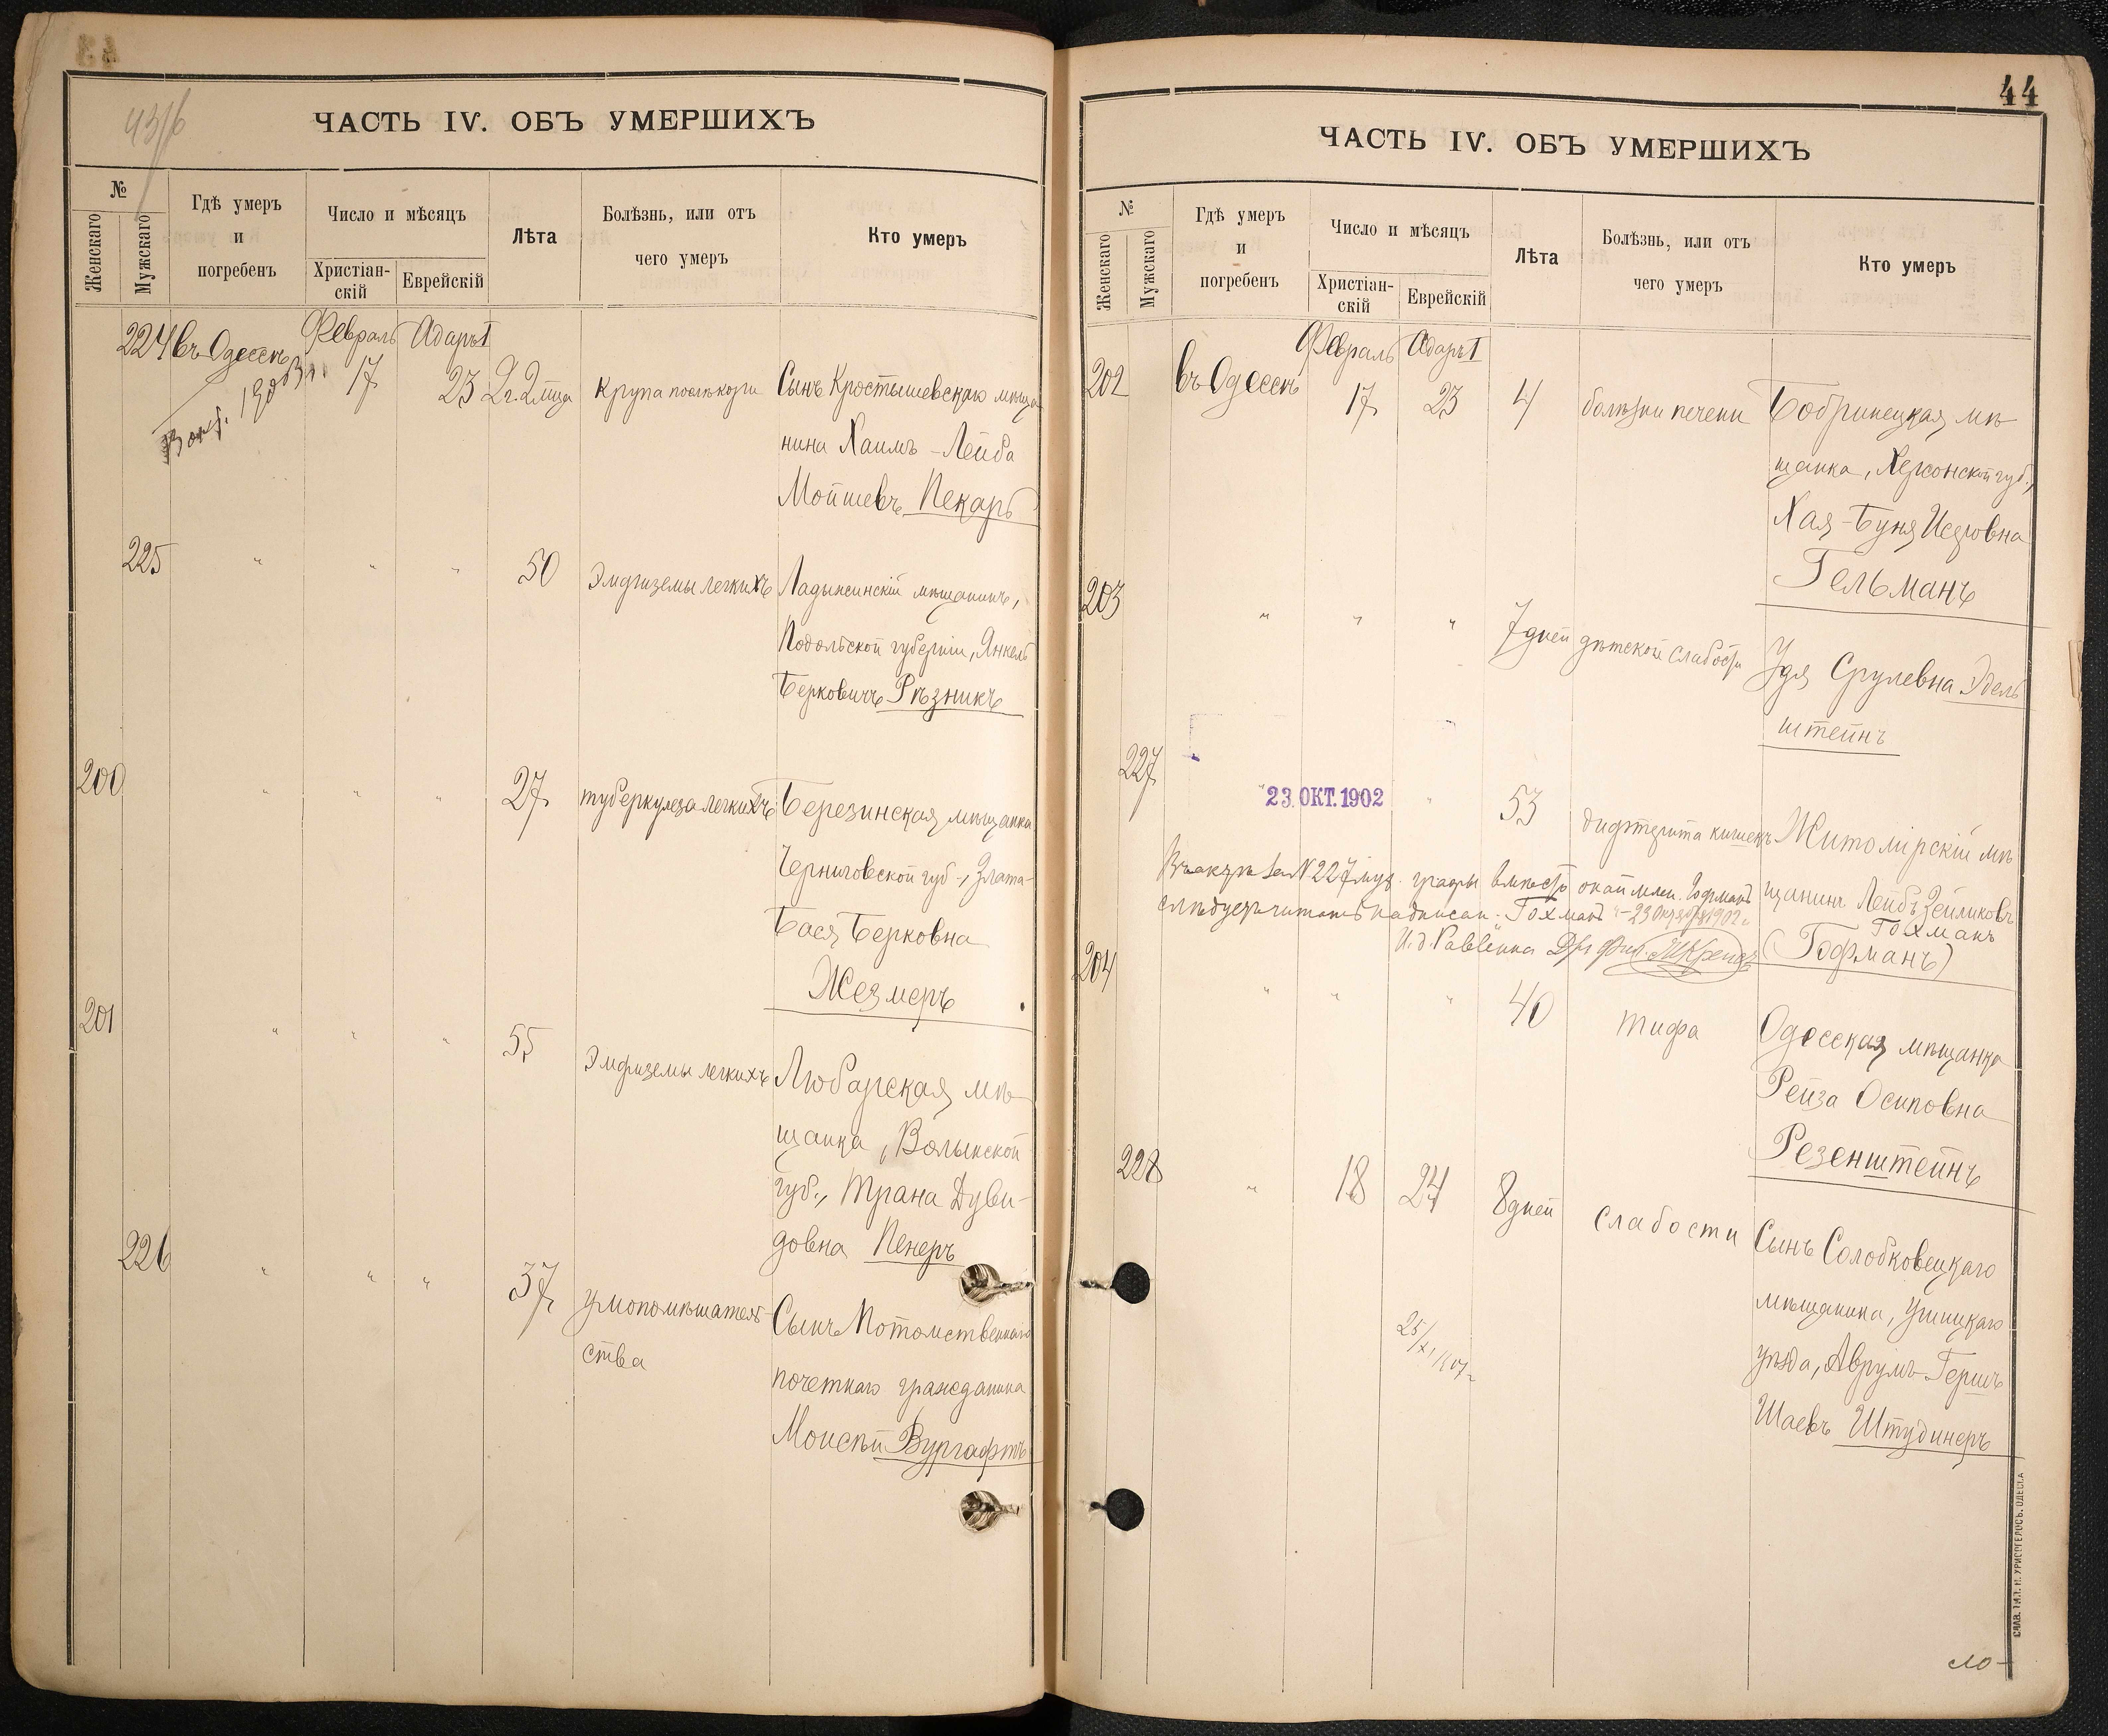 ЧАСТЬ IV. ОБЪ УМЕРШИХЪ
№
Женскаго
Мужскаго
Гдѣ умеръ
и
погребенъ
Число и мѣсяцъ
Христіан-
скій
Еврейскій
Лѣта
Болѣзнь, или отъ
чего умеръ
Кто умеръ
224 въ Одессѣ Февраль Адаръ I
17 23 2 г. 2 мца Крупа послѣ кори Сынъ Кростышевскаго мѣща
нина Хаимъ-Лейба
Мойшевъ Пекарь
225 " " " 50 Эмфиземы легкихъ Ладыжинскій мѣщанинъ,
Подольской губерніи, Янкель
Берковичъ Рѣзникъ
200 " " " 27 туберкулеза легкихъ Березинская мѣщанка
Черниговской губ., Злата-
Бася Берковна
Жезмеръ
201 " " " 55 Эмфиземы легкихъ Любарская мѣ-
щанка, Волынской
губ., Трана Дуви-
довна Пенеръ
226 " " " 37 умопомѣшатель-
ства
Сынъ Потомственнаго
почетнаго гражданина
Моисей Вургафтъ
44
ЧАСТЬ IV. ОБЪ УМЕРШИХЪ
№
Женскаго
Мужскаго
Гдѣ умеръ
и
погребенъ
Число и мѣсяцъ
Христіан-
скій
Еврейскій
Лѣта
Болѣзнь, или отъ
чего умеръ
Кто умеръ
202 въ Одессѣ Февраль Адаръ I
17 23 4 болѣзни печени Бобринецкая мѣ-
щанка, Херсонской губ.,
Хая-Буня
Гельманъ
203 " " " 7 дней дѣтской слабости Удя Срулевна Эдель
штейнъ
227 23 ОКТ. 1902 " 53 дифтерита кишекъ Житомірскій мѣ
щанинъ Лейбъ Зейликовъ
Гохманъ
(Гофманъ)
Въ актѣ за N 227 муж. графы вмѣсто Гофманъ
слѣдуетъ читать Гохманъ - 23 Октября 1902 г.
И. д. Раввина
204 " " " 40 тифа Одесская мѣщанка
Рейза Осиповна
Резенштейнъ
228 " 18 24 8 дней слабости Сынъ Солобковецкаго
мѣщанина, Ушицкаго
уѣзда, Аврумъ-Гершъ
Шаевъ Штудинеръ